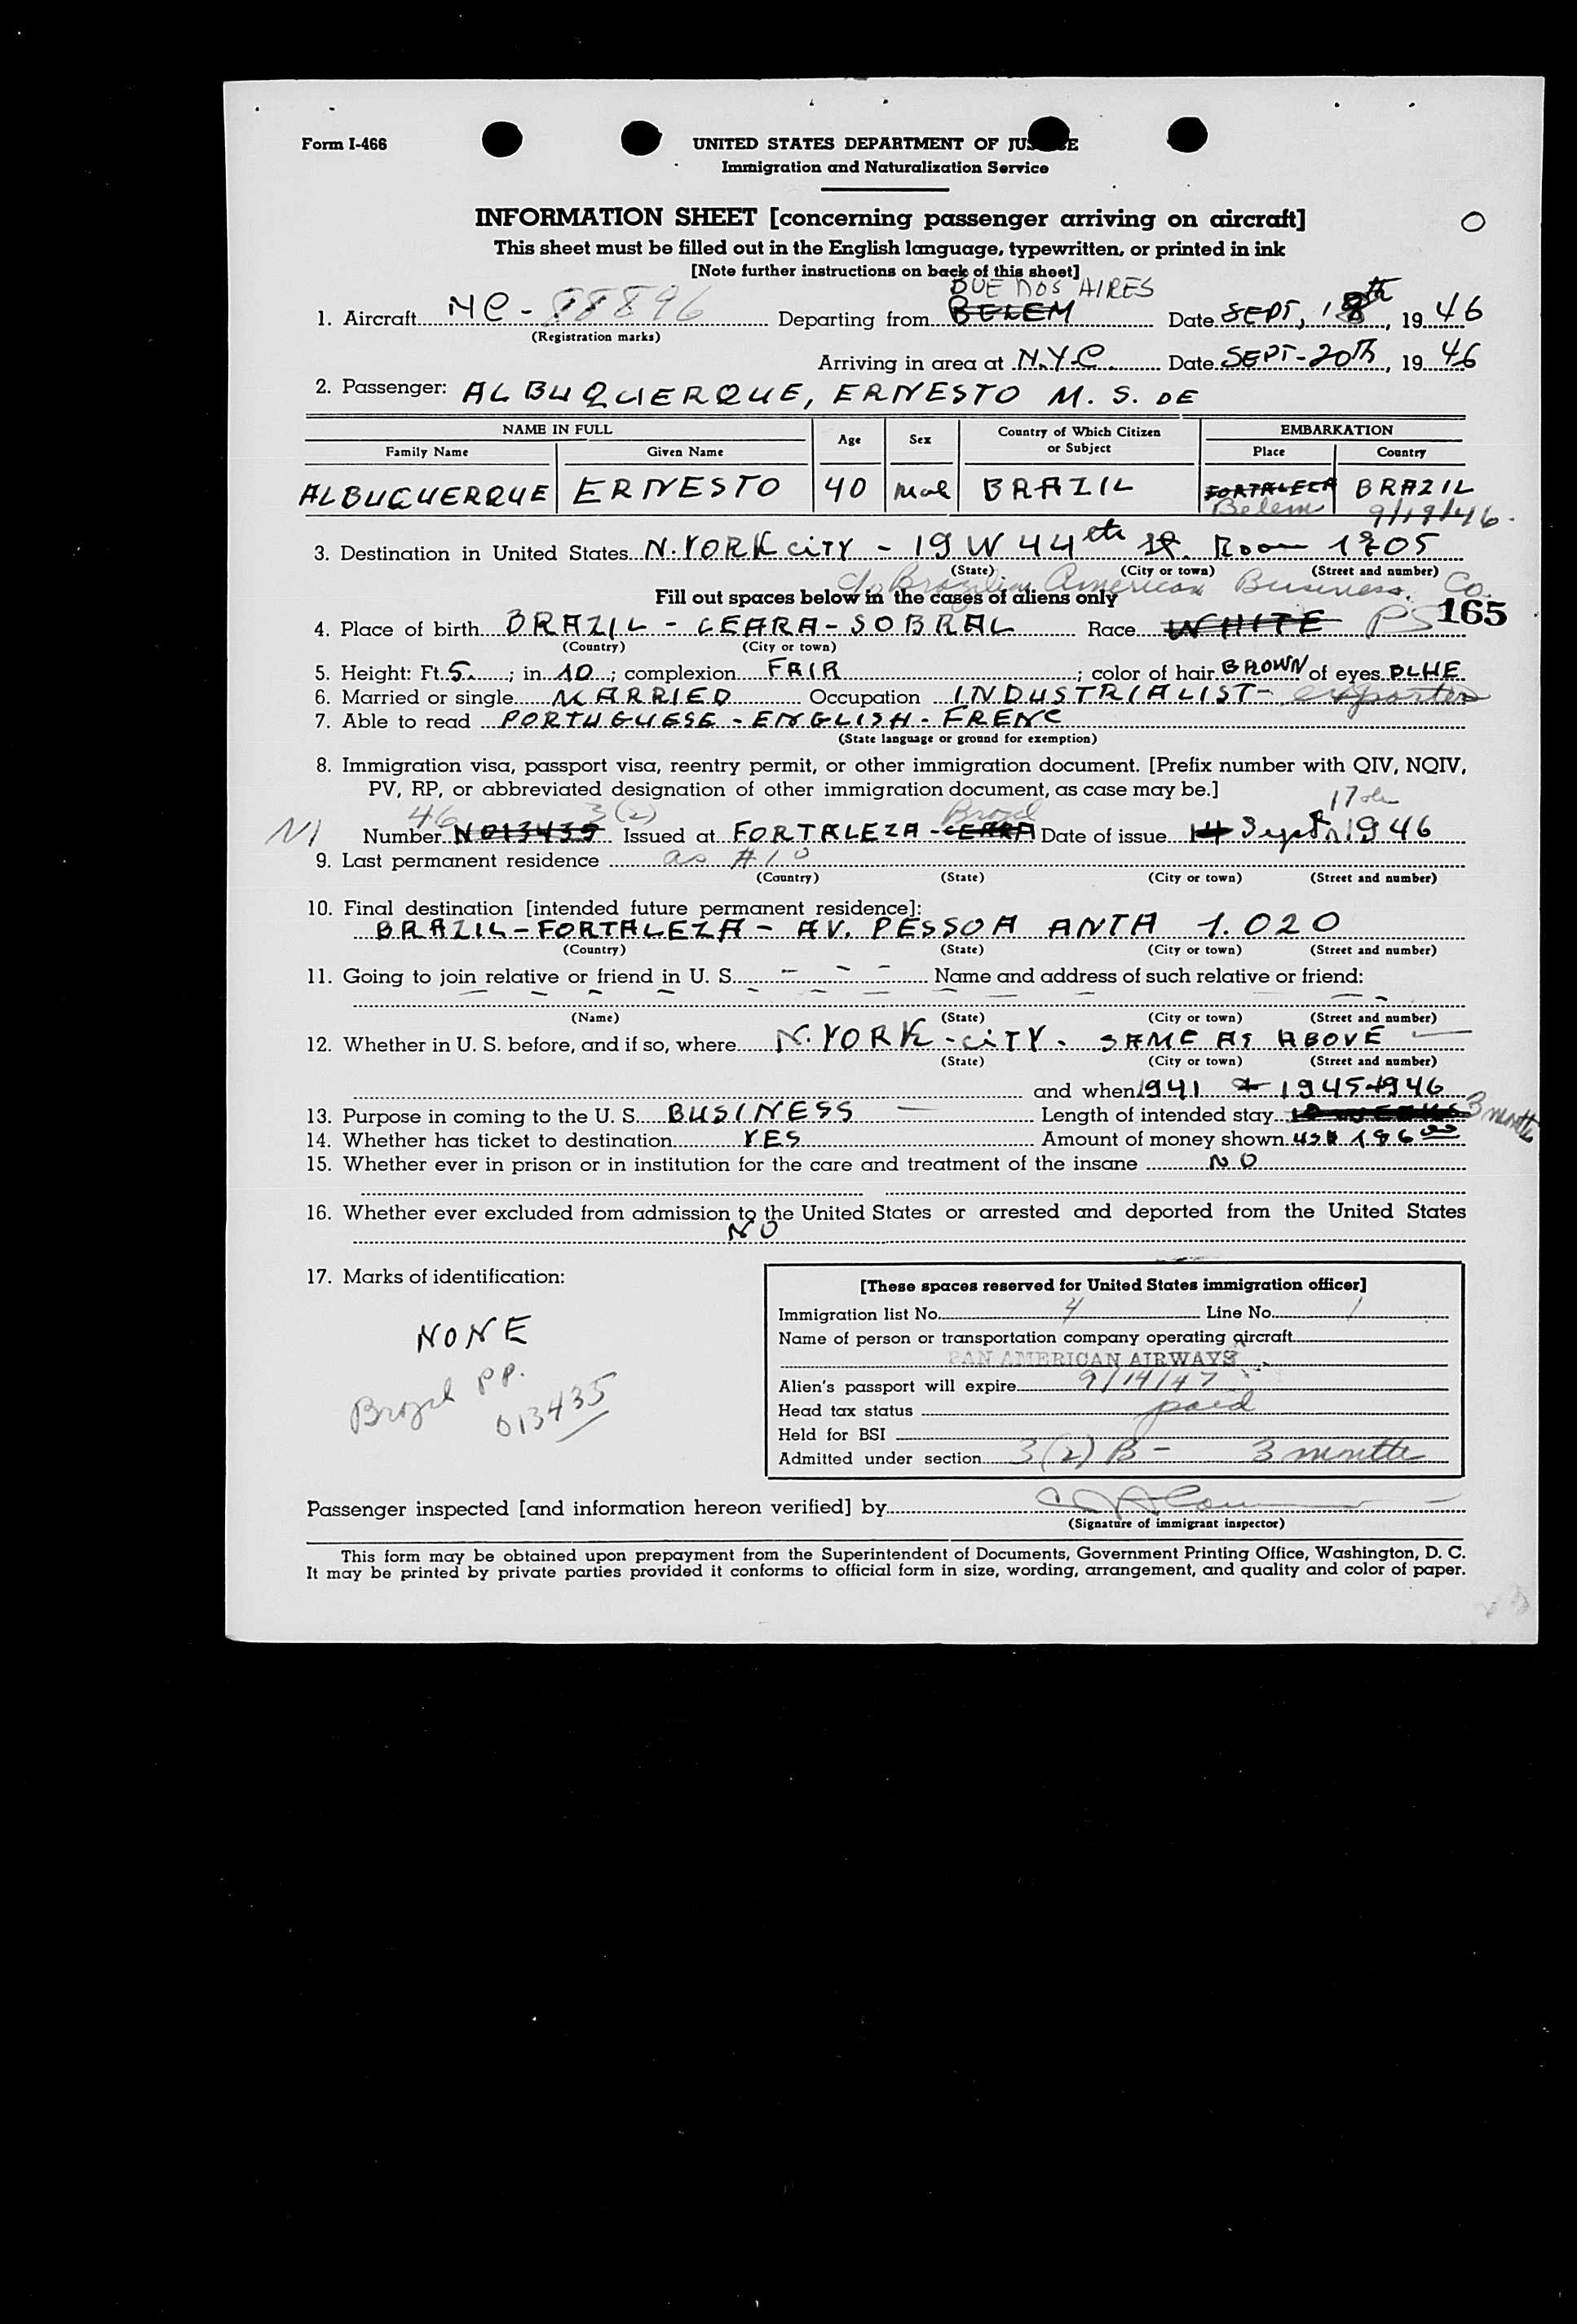 Form I-466
UNITED STATES DEPARTMENT OF JUS E
Immigration and Naturalization Service
INFORMATION SHEET [concerning passenger arriving on aircraft]
O
This sheet must be filled out in the English language, typewritten, or printed in ink
[Note further instructions on back of this sheet]
BUENOS AIRES
1. Aircraft NC - 88896 Departing from BELEM Date SEPT, 18th, 19 46
(Registration marks)
Arriving in area at N.Y.C. Date SEPT-20Th, 19 46
2. Passenger: ALBUQUERQUE, ERNESTO M. S. DE
NAME IN FULL Age Sex Country of Which Citizen or Subject EMBARKATION
Family Name Given Name Place Country
ALBUQUERQUE ERNESTO 40 Mal BRAZIL FORTALEZA BRAZIL
Belem 9/19/46.
3. Destination in United States N. YORK CITY - 19 W 44th St. Room 1205
(State) (City or town) (Street and number)
c/o Brazilian American Business Co.
Fill out spaces below in the cases of aliens only
165
4. Place of birth BRAZIL - CEARA - SOBRAL Race WHITE PS
(Country) (City or town)
5. Height: Ft. 5. ; in. 10 ; complexion FAIR ; color of hair BROWN of eyes BLUE
6. Married or single MARRIED Occupation INDUSTRIALIST - exporter
7. Able to read PORTUGUESE - ENGLISH - FRENC
(State language or ground for exemption)
8. Immigration visa, passport visa, reentry permit, or other immigration document. [Prefix number with QIV, NQIV,
PV, RP, or abbreviated designation of other immigration document, as case may be.]
46 3(2) Brazil 17
Number N013435 Issued at FORTALEZA - CEARA Date of issue 14 Sept 1946
9. Last permanent residence as #10
(Country) (State) (City or town) (Street and number)
10. Final destination [intended future permanent residence]:
BRAZIL - FORTALEZA - AV. PESSOA ANTA 1.020
(Country) (State) (City or town) (Street and number)
11. Going to join relative or friend in U. S. - - - Name and address of such relative or friend:
(Name) (State) (City or town) (Street and number)
12. Whether in U. S. before, and if so, where N. YORK - CITY - SAME AS ABOVE
(State) (City or town) (Street and number)
and when 1941 & 1945-1946
13. Purpose in coming to the U. S. BUSINESS Length of intended stay 3 months
14. Whether has ticket to destination YES Amount of money shown US$ 196 00
15. Whether ever in prison or in institution for the care and treatment of the insane NO
16. Whether ever excluded from admission to the United States or arrested and deported from the United States
NO
17. Marks of identification:
NONE
Brazil PP.
013435
[These spaces reserved for United States immigration officer]
Immigration list No. 4 Line No. 1
Name of person or transportation company operating aircraft
PAN AMERICAN AIRWAYS
Alien's passport will expire 9/14/47
Head tax status paid
Held for BSI
Admitted under section 3(2) B - 3 months
Passenger inspected [and information hereon verified] by
(Signature of immigrant inspector)
This form may be obtained upon prepayment from the Superintendent of Documents, Government Printing Office, Washington, D. C.
It may be printed by private parties provided it conforms to official form in size, wording, arrangement, and quality and color of paper.